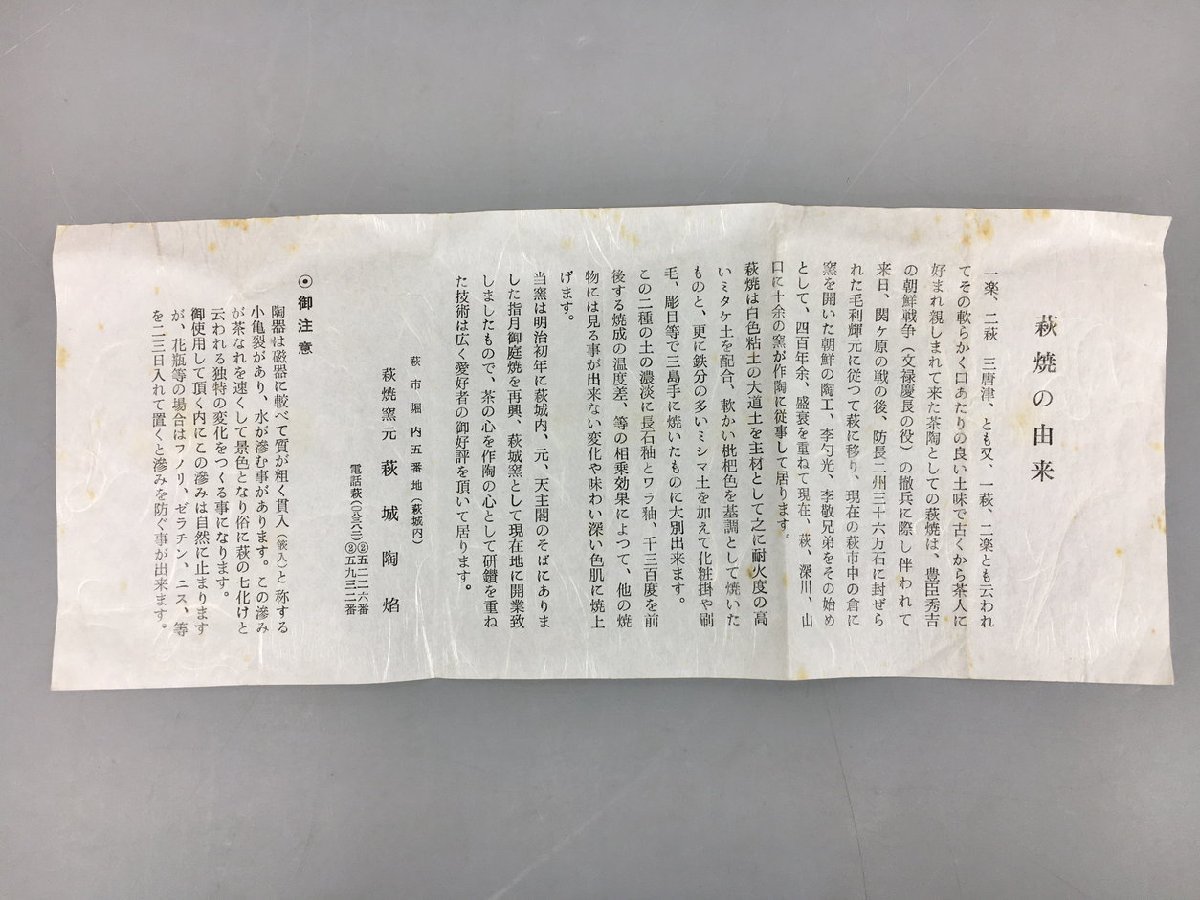 萩焼の由来
一楽、二萩　三唐津、とも又、一萩、二楽とも云われ
てその軟らかく口あたりの良い土味で古くから茶人に
好まれ親しまれて来た茶陶としての萩焼は、豊臣秀吉
の朝鮮戦争（文禄慶長の役）の撤兵に際し伴われて
来日、関ヶ原の戦の後、防長二州三十六万石に封ぜら
れた毛利輝元に従つて萩に移り、現在の萩市中の倉に
窯を開いた朝鮮の陶工、李勺光、李敬兄弟をその始め
として、四百年余、盛衰を重ねて現在、萩、深川、山
口に十余の窯が作陶に従事して居ります。
萩焼は白色粘土の大道土を主材として之に耐火度の高
いミタケ土を配合、軟かい枇杷色を基調として焼いた
ものと、更に鉄分の多いミシマ土を加えて化粧掛や刷
毛、彫目等で三島手に焼いたものに大別出来ます。
この二種の土の濃淡に長石釉とワラ釉、千三百度を前
後する焼成の温度差、等の相乗効果によつて、他の焼
物には見る事が出来ない変化や味わい深い色肌に焼上
げます。
当窯は明治初年に萩城内、元、天主閣のそばにありま
した指月御庭焼を再興、萩城窯として現在地に開業致
しましたもので、茶の心を作陶の心として研鑽を重ね
た技術は広く愛好者の御好評を頂いて居ります。
萩市堀内五番地（萩城内）
萩焼窯元　萩城陶焔
電話萩（〇八三八二）②五二二六番
②五九三二番
⦿御注意
陶器は磁器に較べて質が粗く貫入（疑入）と称する
小亀裂があり、水が滲む事があります。この滲み
が茶なれを速くして景色となり俗に萩の七化けと
云われる独特の変化をつくる事になります。
御使用して頂く内にこの滲みは自然に止まります
が、花瓶等の場合はフノリ、ゼラチン、ニス、等
を二三日入れて置くと滲みを防ぐ事が出来ます。